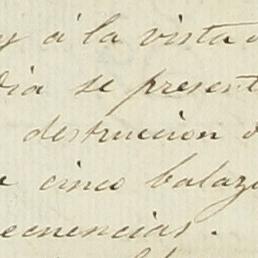 y á la vista
dia se present
destruccion d
cinco balaz
ecuencias.